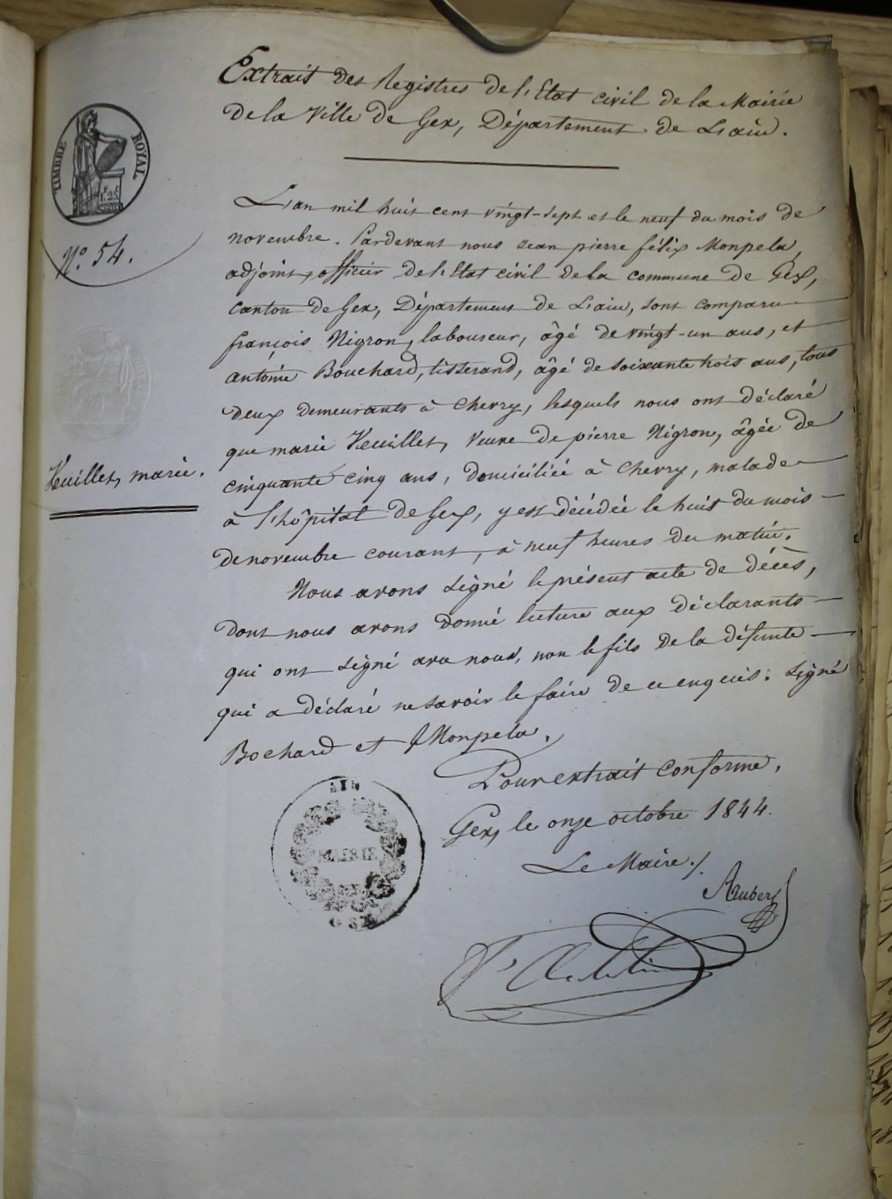 Extrait des Registres de l'Etat civil de la Mairie
de la Ville de Gex, Département de L'ain.
TIMBRE ROYAL
1F 25
N° 54.
L'an mil huit cent vingt-sept et le neuf du mois de
novembre. Pardevant nous Jean pierre félix Monpela,
adjoint, officier de l'Etat civil de la commune de Gex,
canton de Gex, Département de L'ain, sont comparu
françois Nigron, laboureur, âgé de vingt-un ans, et
antoine Bouchard, tisserand, âgé de soixante trois ans, tous
deux demeurants à Chevry, lesquels nous ont déclaré
que marie Veuillet, veuve de pierre Nigron, âgée de
cinquante cinq ans, domiciliée à Chevry, malade
à l'hôpital de Gex, y est décédée le huit du mois
de novembre courant, à neuf heures du matin.
Veuillet, marie.
Nous avons signé le présent acte de décès,
dont nous avons donné lecture aux déclarants
qui ont signé avec nous, non le fils de la défunte
qui a déclaré ne savoir le faire de ce enquis : Signé
Bochard et Monpela.
Pour extrait conforme,
Gex, le onze octobre 1844.
Le Maire /.
AIN
MAIRIE
DE
GEX